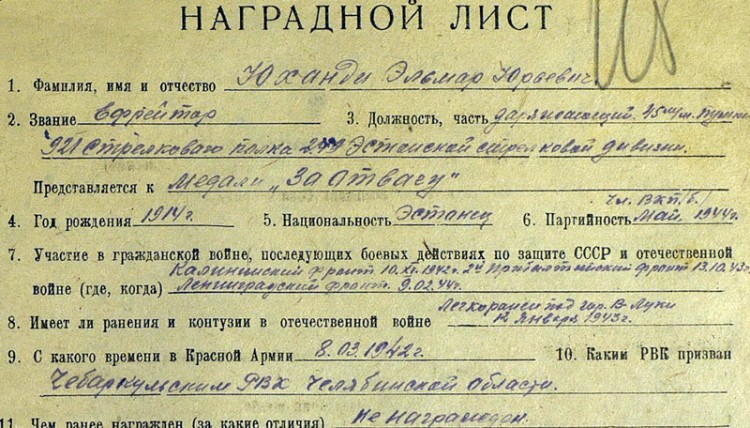 НАГРАДНОЙ ЛИСТ
1. Фамилия, имя и отчество Юханди Эльмар Юрьевич.
2. Звание ефрейтор 3. Должность, часть заряжающий 45 мм. пушки
921 Стрелкового полка 249 Эстонской стрелковой дивизии.
Представляется к медали „За отвагу"
чл. ВКП/б/
4. Год рождения 1914 г. 5. Национальность Эстонец 6. Партийность Май 1944 г.
7. Участие в гражданской войне, последующих боевых действиях по защите СССР и отечественной
Калининский фронт 10.XI.1942 г. 2й Прибалтийский фронт 13.10.43 г.
войне (где, когда) Ленинградский фронт. 9.02.44 г.
Легко ранен под гор. В-Луки
8. Имеет ли ранения и контузии в отечественной войне 12 Январь 1943 г.
9. С какого времени в Красной Армии 8.03.1942 г. 10. Каким РВК призван
Чебаркульским РВК Челябинской области.
11. Чем ранее награжден (за какие отличия) не награжден.